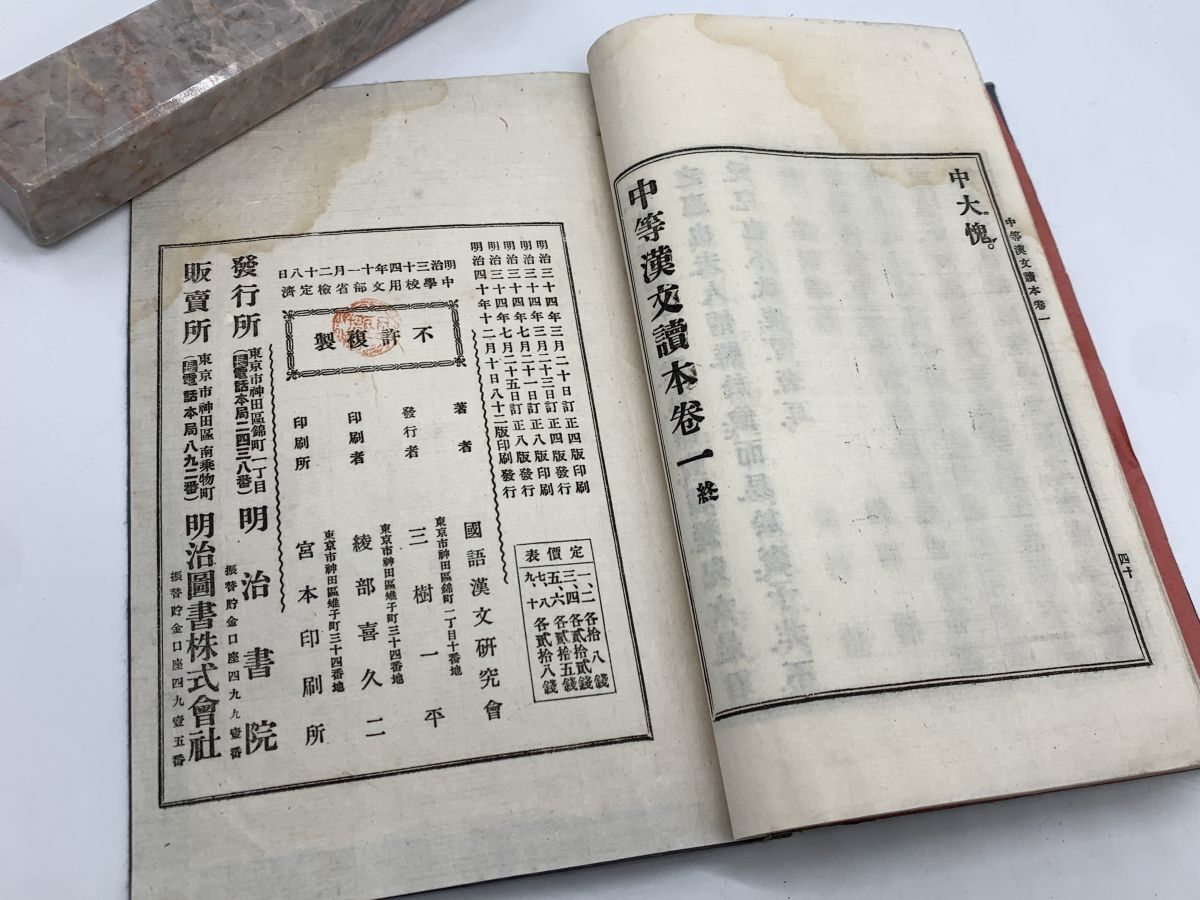 中大愧。
中等漢文讀本卷一
四十
中等漢文讀本卷一終
明治三十四年三月二十日訂正四版印刷
明治三十四年三月二十三日訂正四版發行
明治三十四年七月二十一日訂正八版印刷
明治三十四年七月二十五日訂正八版發行
明治四十年十二月十日八十二版印刷發行
明治三十四年十一月二十八日
中學校用文部省檢定濟
不許複製
定價表
一、二 各拾八錢
三、四 各貳拾貳錢
五、六 各貳拾五錢
七、八
九、十 各貳拾八錢
著者 國語漢文研究會
東京市神田區錦町一丁目十番地
發行者 三樹一平
東京市神田區雉子町三十四番地
印刷者 綾部喜久二
東京市神田區雉子町三十四番地
印刷所 宮本印刷所
發行所 東京市神田區錦町一丁目 明治書院
(電話本局二四三八番)
振替貯金口座四九九壹番
販賣所 東京市神田區南乘物町 明治圖書株式會社
(電話本局八九二番)
振替貯金口座四九壹五番